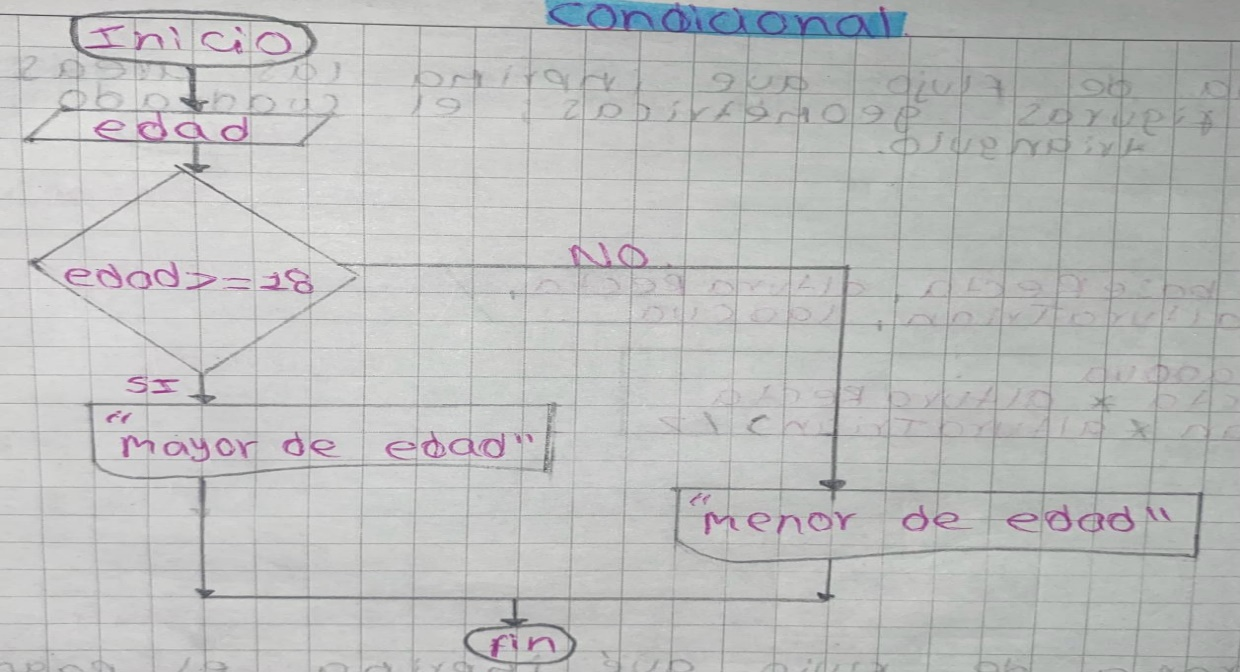 condicional
Inicio
edad
edad>=18
NO
SI
"mayor de edad"
"menor de edad"
fin